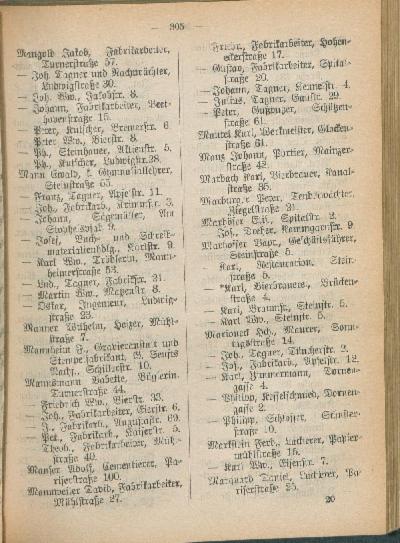 — 305 —
Mangold Jakob, Fabrikarbeiter,
Turnerstraße 57.
— Joh. Tagner und Nachtwächter,
Ludwigstraße 30.
— Joh. Ww., Jakobstr. 8.
— Johann, Fabrikarbeiter, Beet-
hovenstraße 15.
— Peter, Kutscher, Bremerstr. 6
— Peter Ww., Bierstr. 8.
— Ph., Steinhauer, Aktienstr. 5.
— Ph., Kutscher, Ludwigstr. 28.
Mann Ewald, k. Gymnasiallehrer,
Steinstraße 53.
— Franz, Tagner, 11.
— Joh., Fabrikarb., 3.
— Johann, Sägmüller, Am
9.
— Josef, Buch- und Schreib-
materialienhdlg., 9.
— Karl Ww., Trödlerin, Mann-
heimerstraße 53.
— Lud., Tagner, Fabrikstr. 21.
— Martin Ww., Mozartstr. 8.
— Oskar, Ingenieur, Ludwig-
straße 23.
Manner Wilhelm, Heizer, Mühl-
straße 7.
Mannheim F., Gravieranstalt und
Stempelfabrikant, J. Senfts
Nachf., Schillerstr. 10.
Mannsmann Babette, Büglerin,
Turnerstraße 44.
— Friedrich Ww., Bierstr. 33.
— Joh., Fabrikarbeiter, Gierstr. 6.
— J., Fabrikarb., Augustastr. 69.
— Pet., Fabrikarb., Kaiserstr. 5.
— Theob., Fabrikarbeiter, Mühl-
straße 40.
Manser Adolf, Cementierer, Pa-
riserstraße 100.
Mannweiler David, Fabrikarbeiter,
Mühlstraße 27.
— Friedr., Fabrikarbeiter, Hohen-
eckerstraße 17.
— Gustav, Fabrikarbeiter, Spital-
straße 20.
— Johann, Tagner, 4.
— Julius, Tagner, Gaustr. 29.
— Peter, Gußputzer, Schützen-
straße 61.
Mantel Karl, Werkmeister, Glocken-
straße 61.
Manz Johann, Portier, Mainzer-
straße 42.
Marbach Karl, Bierbrauer, Kanal-
straße 35.
Marburger Peter,
Ziegelstraße 21.
Spitalstr. 2.
— Joh., Dreher, Kammgarnstr. 9.
Marhoffer Geschäftsführer,
Steinstraße 5.
— Karl, Restauration, Stein-
straße 5.
— *Karl, Bierbrauers., Brücken-
straße 4.
— Karl, Braumstr., Steinstr. 5.
— Karl Ww., Steinstr. 5.
Marioneck Hch., Maurer, Sonn-
tagstraße 14.
— Joh., Tagner, Tüncherstr. 2.
— Jos., Fabrikarb., 12.
— Karl, Zimmermann, Dornen-
gasse 4.
— Philipp, Kesselschmied, Dornen-
gasse 2.
— Philipp, Schlosser,
straße 10.
Markstein Ferd., Lackierer, Papier-
mühlstraße 16.
— Karl Ww., Eisenstr. 7.
Marquard Daniel, Lackierer, Pa-
riserstraße 25.
20